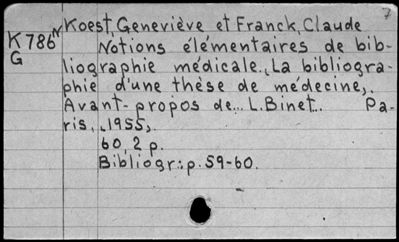 7
K 786 N Koest, Geneviève et Franck, Claude
G Notions élémentaires de bib-
liographie médicale. La bibliogra-
phie d'une thèse de médecine,.
Avant-propos de... L. Binet... Pa-
ris, 1955.
60, 2 p.
Bibliogr.: p. 59-60.